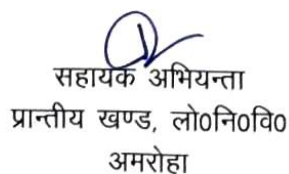 सहायक अभियन्ता
प्रान्तीय खण्ड, लो०नि०वि०
अमरोहा